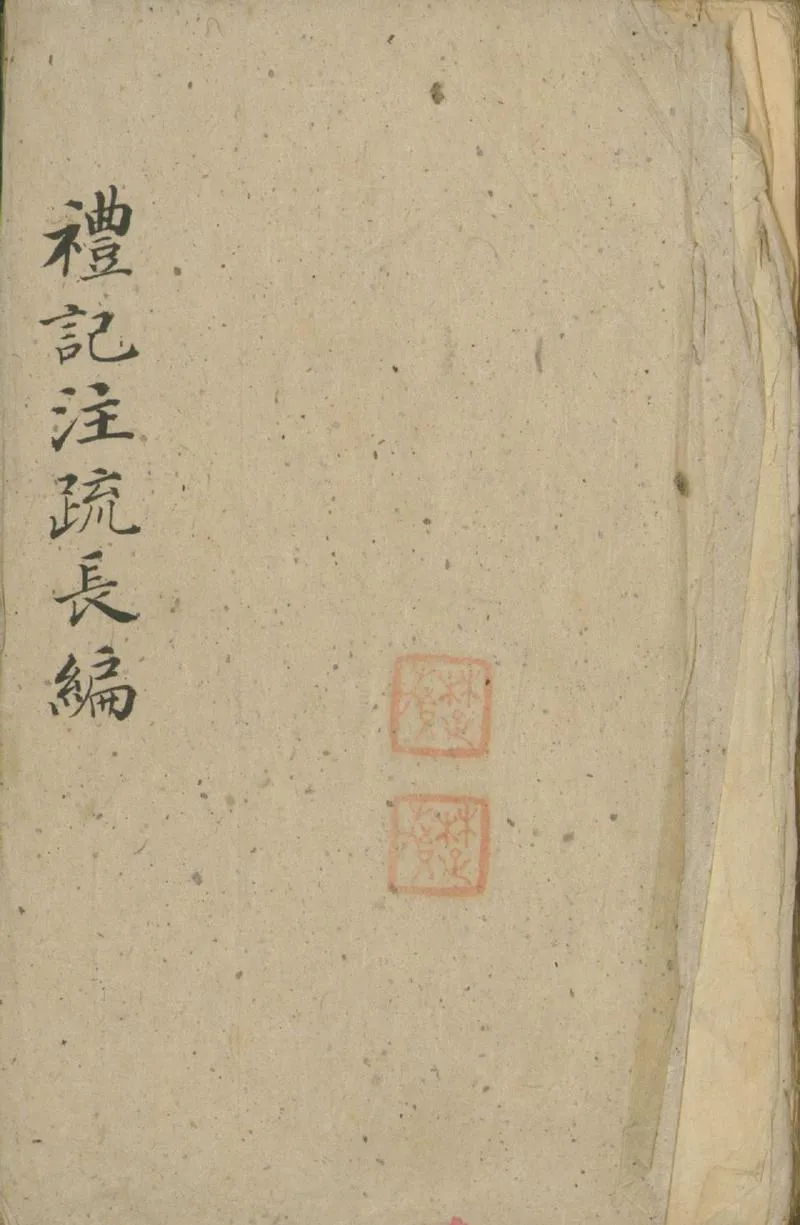 禮記注疏長編